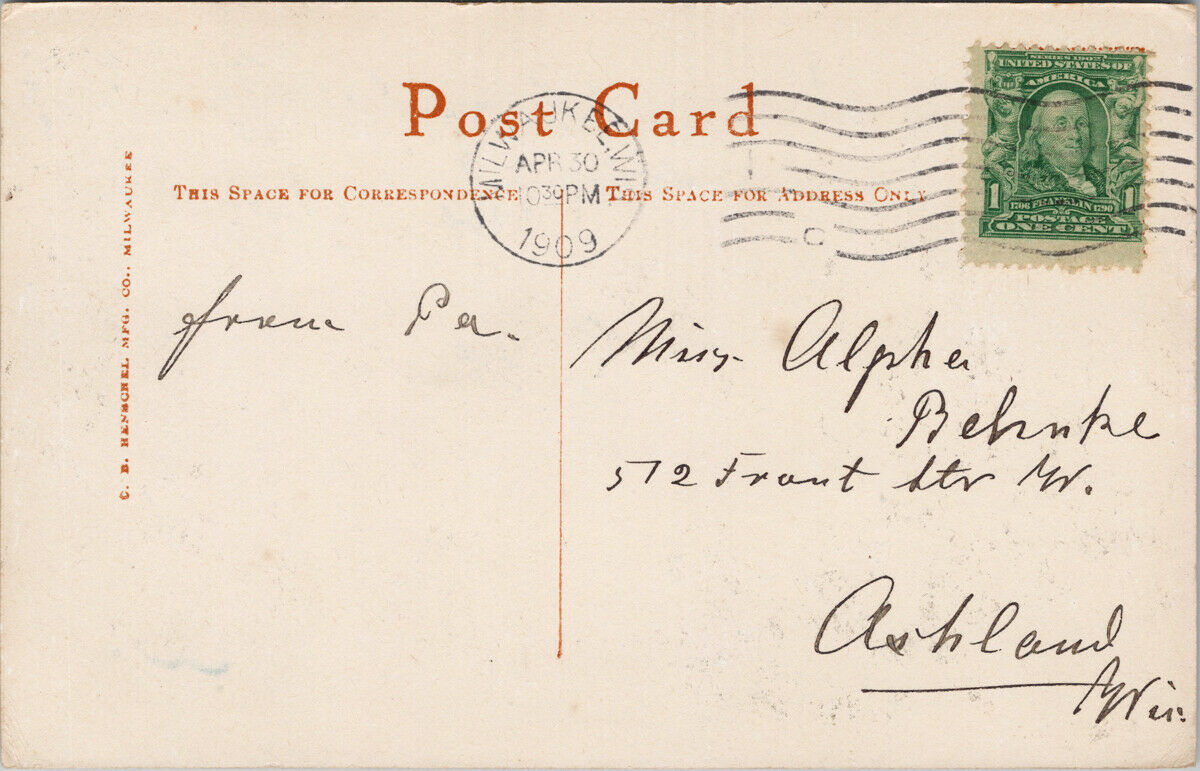 Post Card
MILWAUKEE, WI
APR 30
1030PM
1909
C
SERIES 1902
UNITED STATES OF
AMERICA
1 1
1706 FRANKLIN 1790
POSTAGE
ONE CENT
THIS SPACE FOR CORRESPONDENCE
THIS SPACE FOR ADDRESS ONLY
C. B. HENSCHEL MFG. CO., MILWAUKEE
from Pa.
Miss Alpha
Behnke
512 Front Str W.
Ashland
Wis.